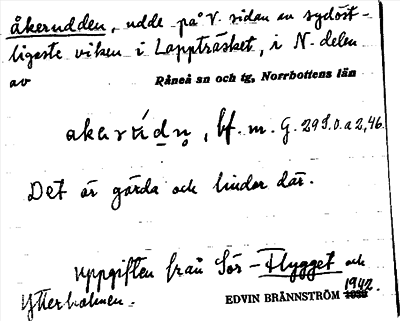 åkerudden, udde på V. sidan av sydöst-
ligaste viken i Lappträsket, i N. delen
av Råneå sn och tg, Norrbottens län
bf. m. G. 29 S. 0. a 2,46.
Det är gärda och lindor där.
Uppgiften från Sör-Flygget och
Ytterholmen.
EDVIN BRÄNNSTRÖM 1942.